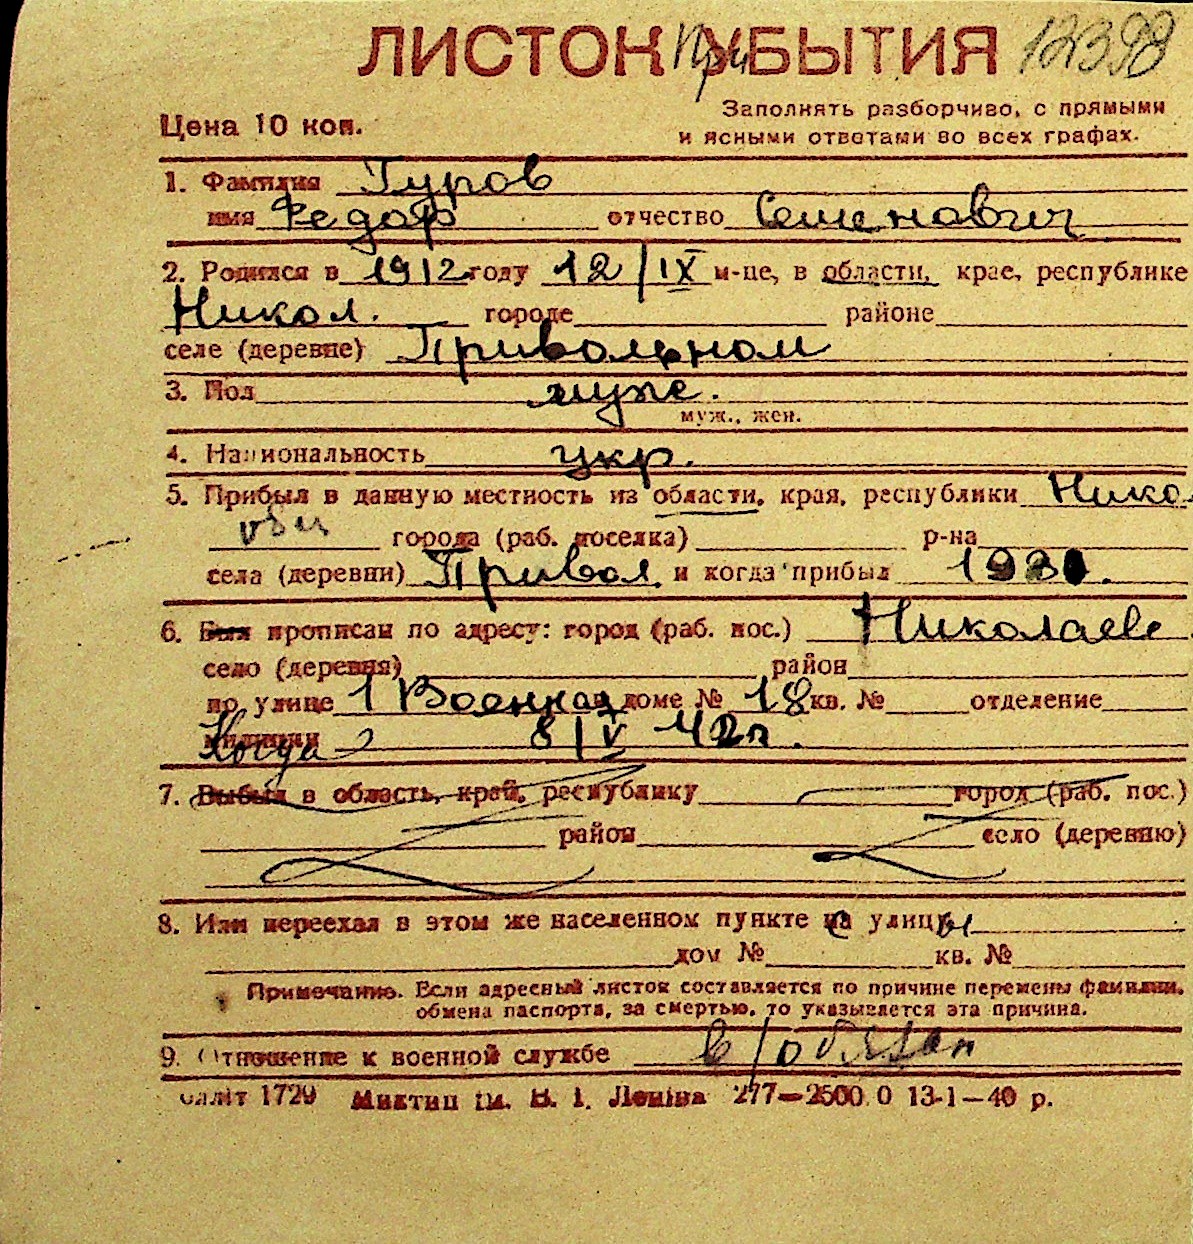 ЛИСТОК При УБЫТИЯ 12398
Цена 10 коп.
Заполнять разборчиво, с прямыми
и ясными ответами во всех графах.
1. Фамилия Гуров
имя Федор отчество Семенович
2. Родился в 1912 году 12/IX м-це, в области, крае, республике
Никол. городе районе
селе (деревне) Привольном
3. Пол муж.
муж., жен.
4. Национальность укр.
5. Прибыл в данную местность из области, края, республики Нико
обл города (раб. поселка) р-на
села (деревни) Привол. и когда прибыл
6. Был прописан по адресу: город (раб. пос.) Николаев
село (деревня) район
по улице 1 Военная доме № 18 кв. № отделение
милиции Когда 8/V 42г.
7. Выбыл в область, край, республику город (раб. пос.)
район село (деревню)
8. Или переехал в этом же населенном пункте на с улицы
дом № кв. №
Примечание. Если адресный листок составляется по причине перемены фамилии,
обмена паспорта, за смертью, то указывается эта причина.
9. Отношение к военной службе в/обязан
1729 Миктип ім. В. І. Леніна 277—2500.0 13-1—40 р.